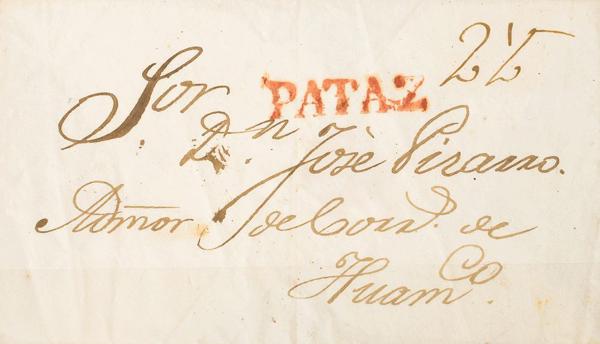 Sor PATAZ
Dn. José Pizarro.
Admor de Corrs. de
Huamco.